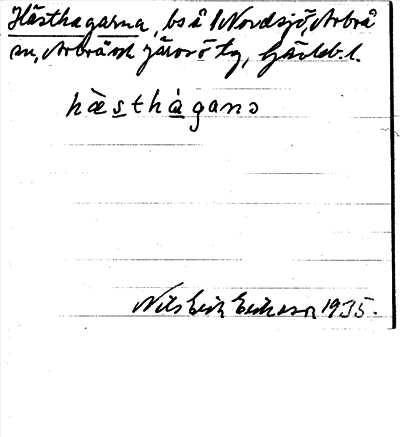 Hästhagarna, bs å 1 Nordsjö, Arbrå
sn, Arbrå och Järvsö tg, Gävleb. l.
hæ̀sthágana
Nils Erik Erikson 1935.